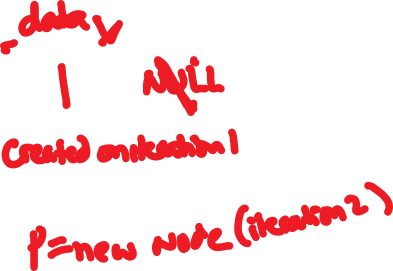 data
| NULL
Created on iteration 1
P=new Node(iteration 2)